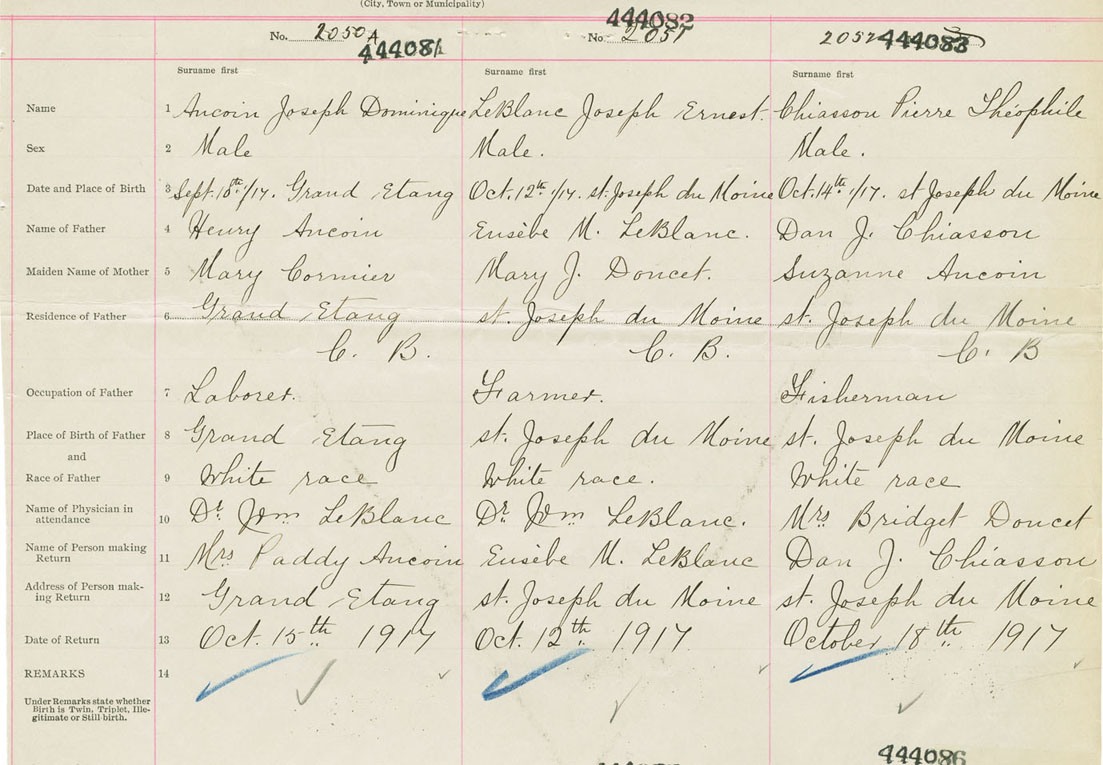 (City, Town or Municipality)
No. 2050A 444081
No. 2051 444082
2052 444083
Surname first Surname first Surname first
Name 1 Aucoin Joseph Dominique LeBlanc Joseph Ernest. Chiasson Pierre Théophile
Sex 2 Male Male. Male.
Date and Place of Birth 3 Sept. 10th /17. Grand Etang Oct. 12th /17. st. Joseph du Moine Oct. 14th /17. st Joseph du Moine
Name of Father 4 Henry Aucoin Eusèbe M. LeBlanc. Dan J. Chiasson
Maiden Name of Mother 5 Mary Cormier Mary J. Doucet. Suzanne Aucoin
Residence of Father 6 Grand Etang st. Joseph du Moine st. Joseph du Moine
C. B. C. B. C. B
Occupation of Father 7 Laborer. Farmer. Fisherman
Place of Birth of Father 8 Grand Etang st. Joseph du Moine st. Joseph du Moine
and
Race of Father 9 White race White race. White race
Name of Physician in
attendance 10 Dr LeBlanc Dr LeBlanc. Mrs Bridget Doucet
Name of Person making
Return 11 Mrs Paddy Aucoin Eusèbe M. LeBlanc Dan J. Chiasson
Address of Person mak-
ing Return 12 Grand Etang st. Joseph du Moine st. Joseph du Moine
Date of Return 13 Oct. 15th 1917 Oct. 12th 1917 October 18th 1917
REMARKS 14
Under Remarks state whether
Birth is Twin, Triplet, Ille-
gitimate or Still-birth.
444086